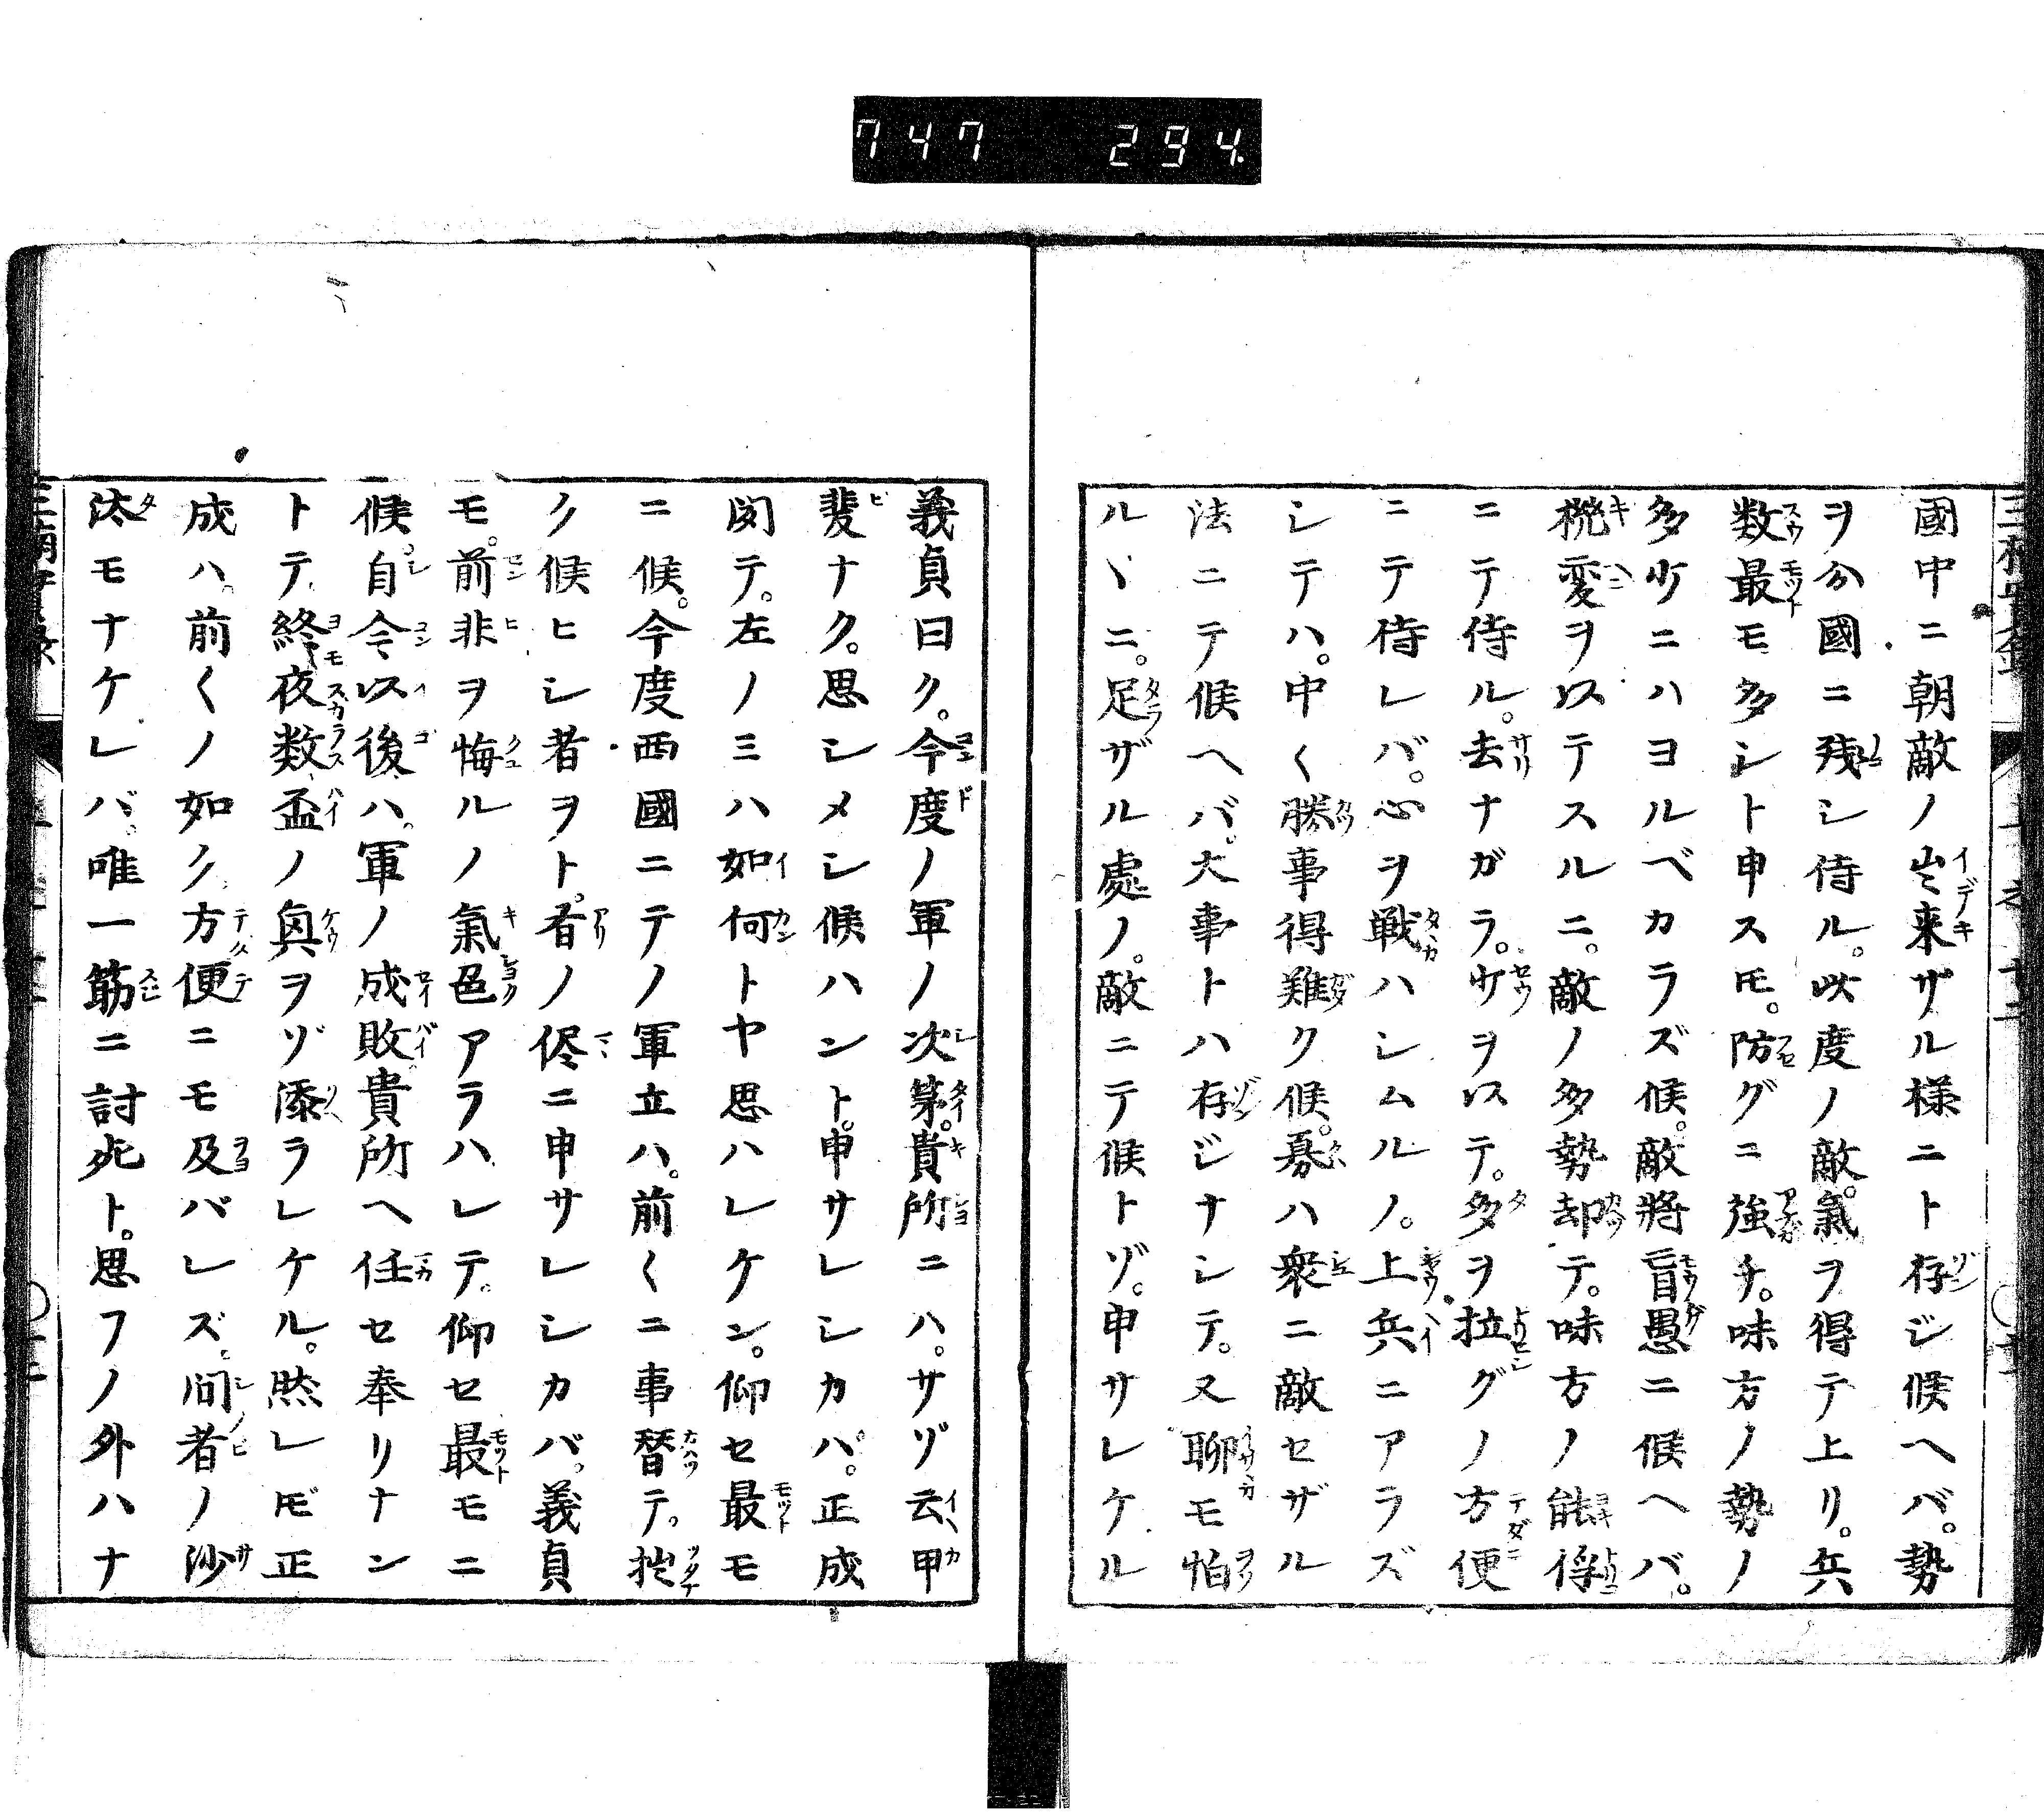 747 294
國中ニ朝敵ノ出来ザル様ニト存ジ候ヘバ。勢
ヲ分國ニ残シ侍ル。此度ノ敵。氣ヲ得テ上リ。兵
数最モ多シト申スモ。防グニ強チ。味方ノ勢ノ
多少ニハヨルベカラズ候。敵將盲愚ニ候ヘバ。
機変ヲ以テスルニ。敵ノ多勢却テ。味方ノ能得
ニテ侍ル。去ナガラ。少ヲ以テ。多ヲ拉グノ方便
ニテ侍レバ。心ヲ戦ハシムルノ。上兵ニアラズ
シテハ。中〱勝事得難ク候。寡ハ衆ニ敵セザル
法ニテ候ヘバ。大事トハ存ジナシテ。又聊モ怕
ルヽニ。足ザル處ノ。敵ニテ候トゾ。申サレケル
義貞曰ク。今度ノ軍ノ次第。貴所ニハ。サゾ云甲
斐ナク。思シメシ候ハント。申サレシカハ。正成
聞テ。左ノミハ如何トヤ思ハレケン。仰セ最モ
ニ候。今度西國ニテノ軍立ハ。前〱ニ事替テ。拙
ク候ヒシ者ヲト。有ノ侭ニ申サレシカバ。義貞
モ。前非ヲ悔ルノ氣色アラハレテ。仰セ最モニ
候。自今以後ハ。軍ノ成敗貴所ヘ任セ奉リナン
トテ。終夜数盃ノ興ヲゾ添ラレケル。然レ𪜈正
成ハ。前〱ノ如ク。方便ニモ及バレズ。間者ノ沙
汰モナケレバ。唯一筋ニ討死ト。思フノ外ハナ